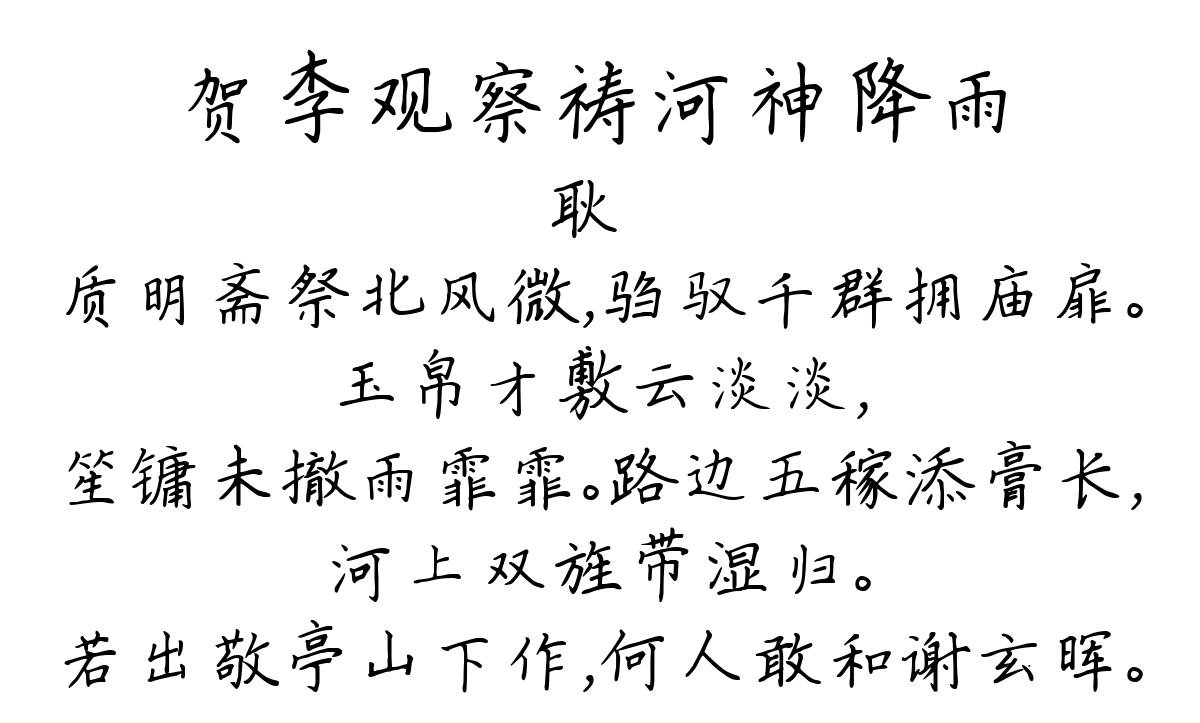 贺李观察祷河神降雨
耿
质明斋祭北风微,驺驭千群拥庙扉。
玉帛才敷云淡淡,
笙镛未撤雨霏霏。路边五稼添膏长,
河上双旌带湿归。
若出敬亭山下作,何人敢和谢玄晖。